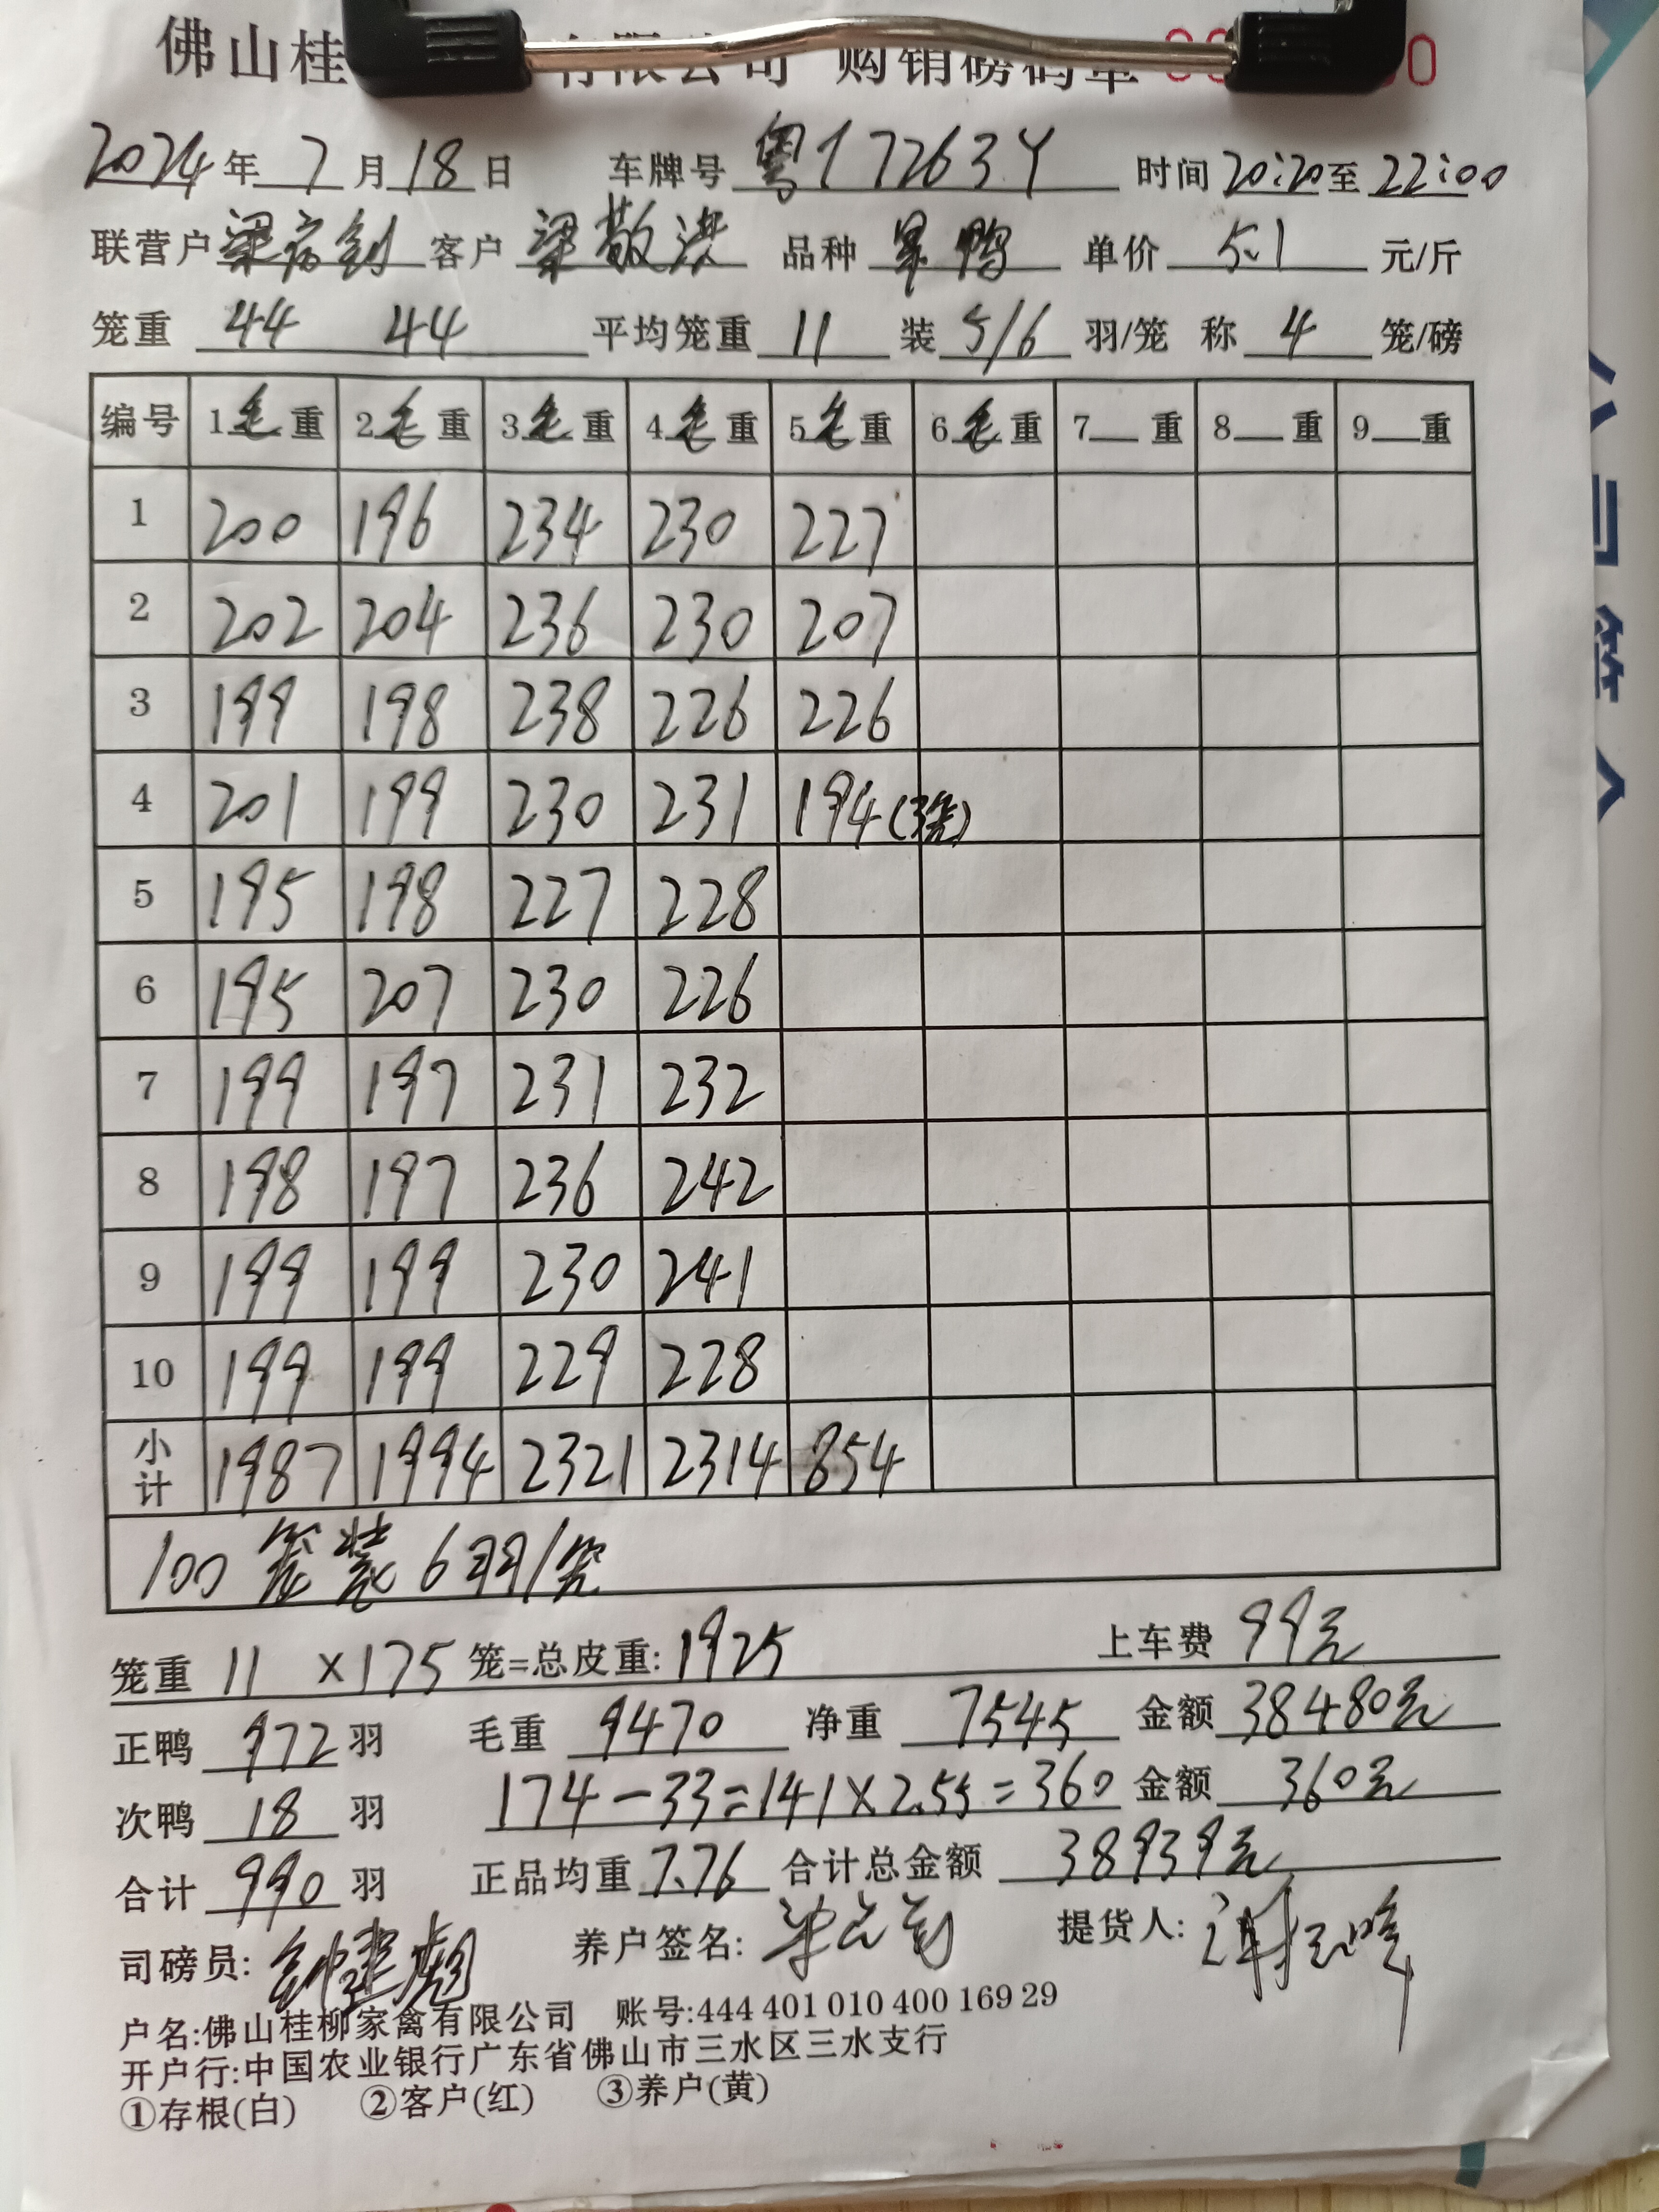 佛山桂 有限公司 购销磅码单 0
2024年7月18日 车牌号 粤17263Y 时间20:20至22:00
联营户 客户 梁敬洪 品种 单价 5.1 元/斤
笼重 44 44 平均笼重 11 装 5/6 羽/笼 称 4 笼/磅
编号 1毛重 2毛重 3毛重 4毛重 5毛重 6毛重 7 重 8 重 9 重
1 200 196 234 230 227
2 202 204 236 230 207
3 199 198 238 226 226
4 201 199 230 231 194(3笼)
5 195 198 227 228
6 195 207 230 226
7 199 197 231 232
8 198 197 236 242
9 199 199 230 241
10 199 199 229 228
小计 1987 1994 2321 2314 854
100笼装6羽/笼
笼重 11 ×175 笼=总皮重:1925 上车费 99元
正鸭 972 羽 毛重 9470 净重 7545 金额 38480元
次鸭 18 羽 174-33=141×2.55=360 金额 360元
合计 990 羽 正品均重 7.76 合计总金额 38939元
司磅员: 养户签名: 提货人:
户名:佛山桂柳家禽有限公司 账号:444 401 010 400 169 29
开户行:中国农业银行广东省佛山市三水区三水支行
①存根(白) ②客户(红) ③养户(黄)